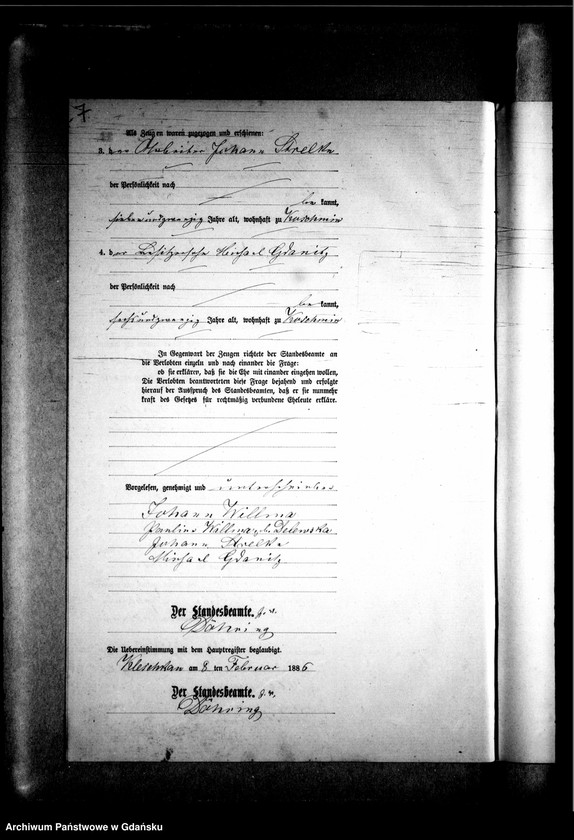 7
Als Zeugen waren zugezogen und erschienen:
3. der Arbeiter Johann Strelke
der Persönlichkeit nach
be kannt,
siebenundzwanzig Jahre alt, wohnhaft zu Koschmin
4. der Besitzersohn Michael Gdanitz
der Persönlichkeit nach
be kannt,
sechsundzwanzig Jahre alt, wohnhaft zu Koschmin
In Gegenwart der Zeugen richtete der Standesbeamte an
die Verlobten einzeln und nach einander die Frage:
ob sie erklären, daß sie die Ehe mit einander eingehen wollen,
Die Verlobten beantworteten diese Frage bejahend und erfolgte
hierauf der Ausspruch des Standesbeamten, daß er sie nunmehr
kraft des Gesetzes für rechtmäßig verbundene Eheleute erkläre.
Vorgelesen, genehmigt und unterschrieben
Johann Willma
Pauline Willma geb. Delewska
Johann Strelke
Michael Gdanitz
Der Standesbeamte.
Döhring
Die Uebereinstimmung mit dem Hauptregister beglaubigt.
Kleschkau am 8 ten Februar 1886
Der Standesbeamte.
Döhring
Archiwum Państwowe w Gdańsku